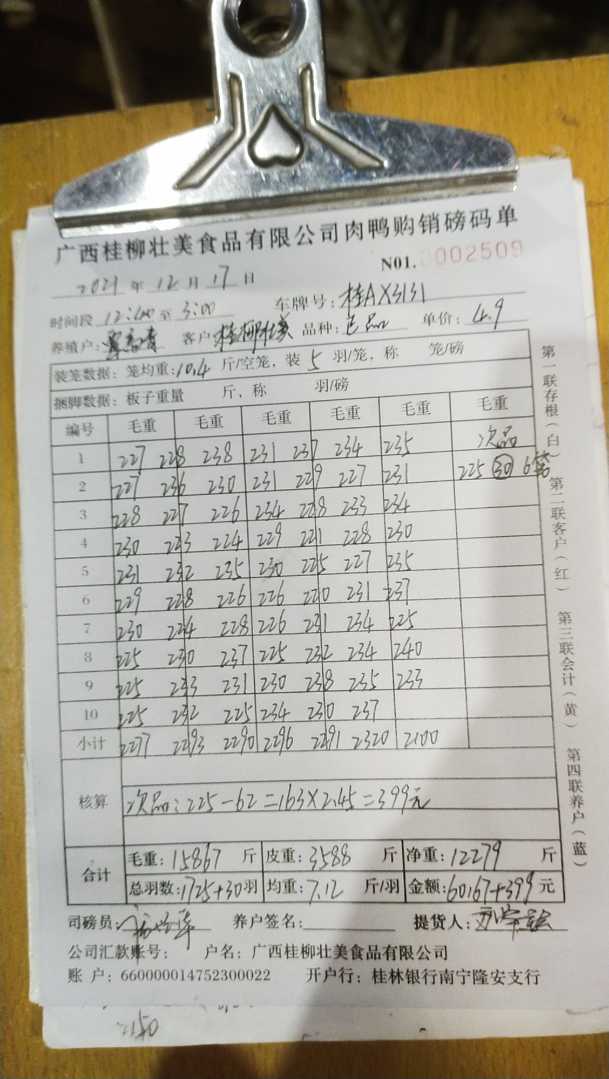 广西桂柳壮美食品有限公司肉鸭购销磅码单
2021年12月17日 N01.0002509
时间段12:00至3:00 车牌号:桂AX3131
养殖户: 客户:桂柳壮美 品种:正品 单价:4.9
装笼数据:笼均重:10.4斤/空笼,装5羽/笼,称 笼/磅
捆脚数据:板子重量 斤,称 羽/磅
编号 毛重 毛重 毛重 毛重 毛重 毛重
1 227 228 238 231 237 234 235 次品
2 227 236 230 231 229 227 231 225 30 6笼
3 228 227 226 234 228 233 234
4 230 233 224 229 221 228 230
5 231 232 235 230 225 227 235
6 229 228 226 226 220 231 237
7 230 224 228 226 231 234 225
8 225 230 237 225 232 234 240
9 225 233 231 230 238 235 233
10 225 232 225 234 230 237
小计 2277 2293 2290 2296 2291 2320 2100
核算 次品:225-62=163×2.45=399元
合计 毛重:15867斤 皮重:3588斤 净重:12279斤
总羽数:1725+30羽 均重:7.12斤/羽 金额:60167+399元
司磅员: 养户签名: 提货人:
公司汇款账号: 户名:广西桂柳壮美食品有限公司
账户:660000014752300022 开户行:桂林银行南宁隆安支行
第一联存根(白) 第二联客户(红) 第三联会计(黄) 第四联养户(蓝)